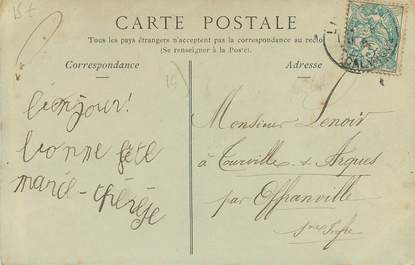 15 f
CARTE POSTALE
Tous les pays étrangers n'acceptent pas la correspondance au recto
(Se renseigner à la Poste).
Correspondance
Adresse
bonjour!
bonne fête
marie-thérèse
Monsieur Lenoir
à Tourville s. Arques
par Offranville
Sne Infre